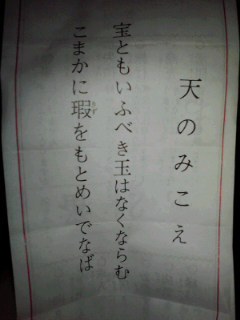 天のみこえ
宝ともいふべき玉はなくならむ
こまかに瑕をもとめいでなば